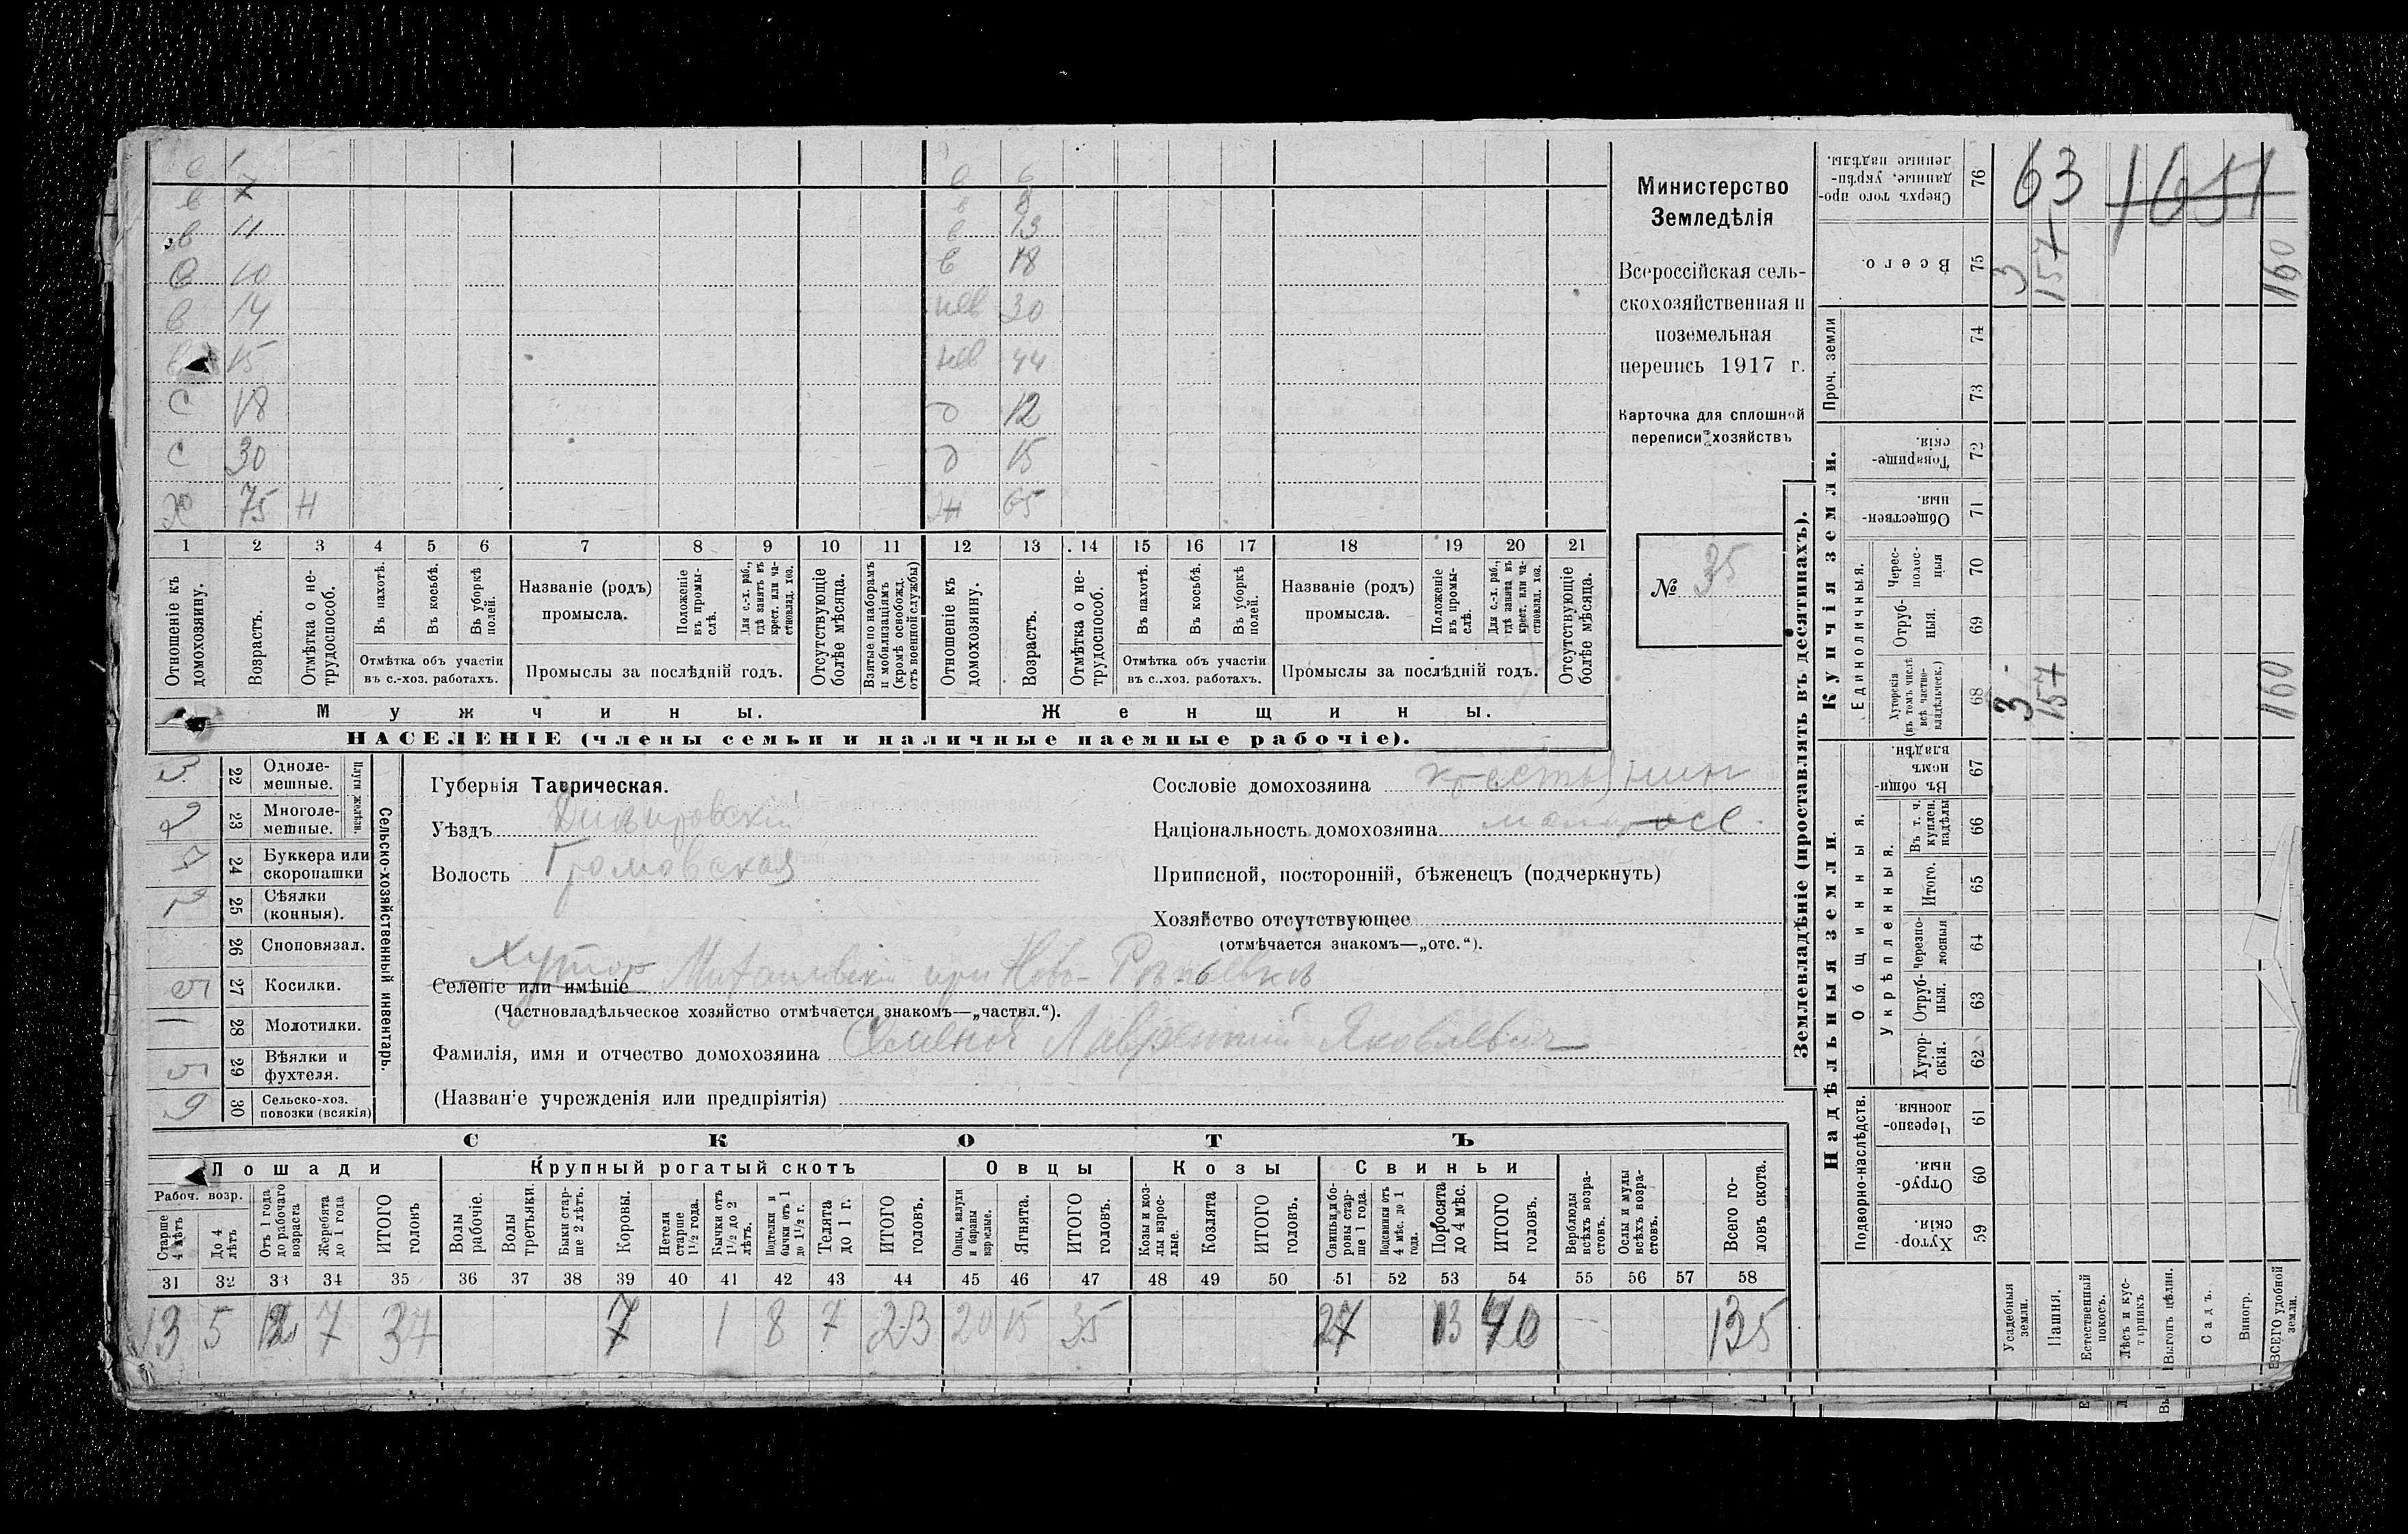 в 1 в 6
в 7 в 8
в 11 в 13
в 10 в 18
в 14 нев 30
15 нев 44
с 18 д 12
с 30 д 15
Х 75 Н ж 65
1 2 3 4 5 6 7 8 9 10 11 12 13 14 15 16 17 18 19 20 21
Отношеніе къ домохозяину.
Возрастъ.
Отмѣтка о нетрудоспособ.
Въ пахотѣ.
Въ косьбѣ.
Въ уборкѣ полей.
Отмѣтка объ участіи
въ с.-хоз. работахъ.
Названіе (родъ)
промысла.
Положеніе въ промыслѣ.
Для с.-х. раб., гдѣ занятъ въ крест. или частновлад. хоз.
Промыслы за послѣдній годъ.
Отсутствующіе болѣе мѣсяца.
Взятые по наборамъ и мобилизаціямъ (кромѣ освобожд. отъ военной службы)
Отношеніе къ домохозяину.
Возрастъ.
Отмѣтка о нетрудоспособ.
Въ пахотѣ.
Въ косьбѣ.
Въ уборкѣ полей.
Отмѣтка объ участіи
въ с.-хоз. работахъ.
Названіе (родъ)
промысла.
Положеніе въ промыслѣ.
Для с.-х. раб., гдѣ занята въ крест. или частновлад. хоз.
Промыслы за послѣдній годъ.
Отсутствующіе болѣе мѣсяца.
Мужчины. Женщины.
НАСЕЛЕНІЕ (члены семьи и наличные наемные рабочіе).
Министерство
Земледѣлія
Всероссійская сель-
скохозяйственная и
поземельная
перепись 1917 г.
Карточка для сплошной
переписи хозяйствъ
№ 35
22 Одноле-
мешные.
23 Многоле-
мешные.
Плуги желѣзн.
24 Буккера или
скоропашки
25 Сѣялки
(конныя).
26 Сноповязал.
27 Косилки.
28 Молотилки.
29 Вѣялки и
фухтеля.
30 Сельско-хоз.
повозки (всякія)
Сельско-хозяйственный инвентарь.
Губернія Таврическая.
Уѣздъ Днѣпровскій
Волость Громовская
Хутор
Селеніе или имѣніе Михайловскій при Ново-
(Частновладѣльческое хозяйство отмѣчается знакомъ—„частвл.“).
Фамилія, имя и отчество домохозяина Лаврентий Яковлевич
(Названіе учрежденія или предпріятія)
Сословіе домохозяина крестьянин
Національность домохозяина малоросс
Приписной, посторонній, бѣженецъ (подчеркнуть)
Хозяйство отсутствующее
(отмѣчается знакомъ—„отс.“).
СКОТЪ
Лошади Крупный рогатый скотъ Овцы Козы Свиньи
Рабоч. возр.
Старше 4 лѣтъ
До 4 лѣтъ
Отъ 1 года до рабочаго возраста
Жеребята до 1 года
ИТОГО головъ
Волы рабочіе.
Волы третьяки.
Быки старше 2 лѣтъ.
Коровы.
Нетели старше 1½ года.
Бычки отъ 1½ до 2 лѣтъ.
Подтелки и бычки отъ 1 до 1½ г.
Телята до 1 г.
ИТОГО головъ.
Овцы, валухи и бараны взрослые.
Ягнята.
ИТОГО головъ.
Козы и козлы взрослые.
Козлята
ИТОГО головъ.
Свиньи, боровы старше 1 года.
Подсвинки отъ 4 мѣс. до 1 года.
Поросята до 4 мѣс.
ИТОГО головъ.
Верблюды всѣхъ возрастовъ.
Ослы и мулы всѣхъ возрастовъ.
Всего головъ скота.
31 32 33 34 35 36 37 38 39 40 41 42 43 44 45 46 47 48 49 50 51 52 53 54 55 56 57 58
13 5 12 7 37 7 1 8 7 23 20 15 35 27 13 40 135
Землевладѣніе (проставлять въ десятинахъ).
Надѣльныя земли. Купчія земли.
Подворно-наслѣдств.
Общинныя.
Укрѣпленныя.
Единоличныя.
Проч. земли
Хутор-
скія. 59
Отруб-
ныя. 60
Черезпо-
лосныя. 61
Хутор-
скія. 62
Отруб-
ныя. 63
Черезпо-
лосныя 64
Итого. 65
Въ т. ч. куплен. надѣлы 66
Въ общи-
номъ
владѣн. 67
Хуторскія (въ томъ числѣ всѣ частновладѣльческ.) 68
Отруб-
ныя. 69
Черес-
полос-
ныя 70
Обществен-
ныя. 71
Товарище-
скія. 72
73
74
Всего. 75
Сверхъ того про-
данные, укрѣп-
ленные надѣлы. 76
Усадебныя земли.
Пашня.
Естественный покосъ.
Лѣсъ и кустарникъ
Выгонъ цѣлин.
Садъ.
Виногр.
ВСЕГО удобной земли.
3 157 160
3 157 160
63 1651